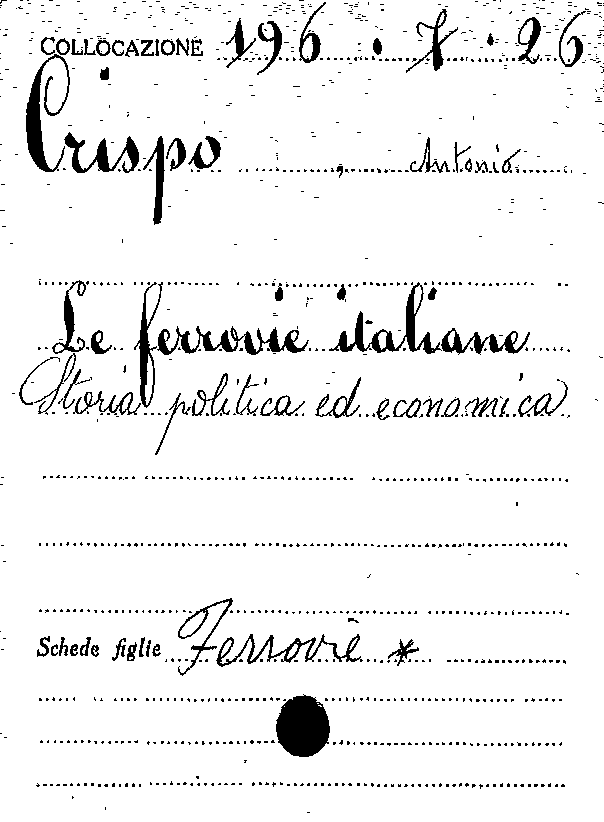 COLLOCAZIONE 196.7.26
Crispo, Antonio
Le ferrovie italiane
Storia politica ed economica
Schede figlie Ferrovie *